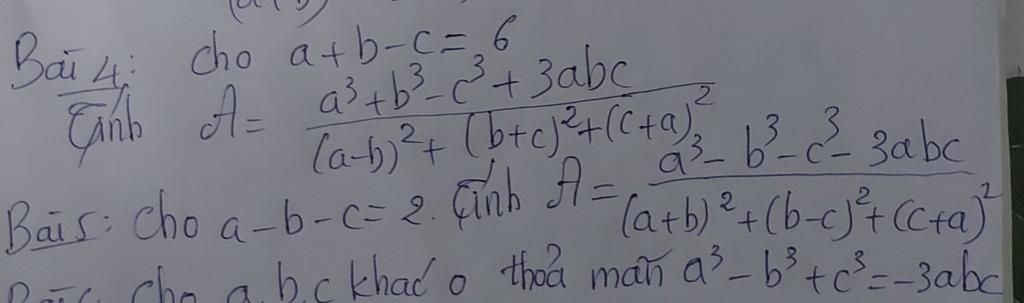 Bài 4: cho a+b-c=6
Tính A= a³+b³-c³+3abc / (a-b)²+(b+c)²+(c+a)²
Bài 5: Cho a-b-c=2. Tính A= a³-b³-c³-3abc / (a+b)²+(b-c)²+(c+a)²
cho a,b,c khác 0 thoả mãn a³-b³+c³=-3abc